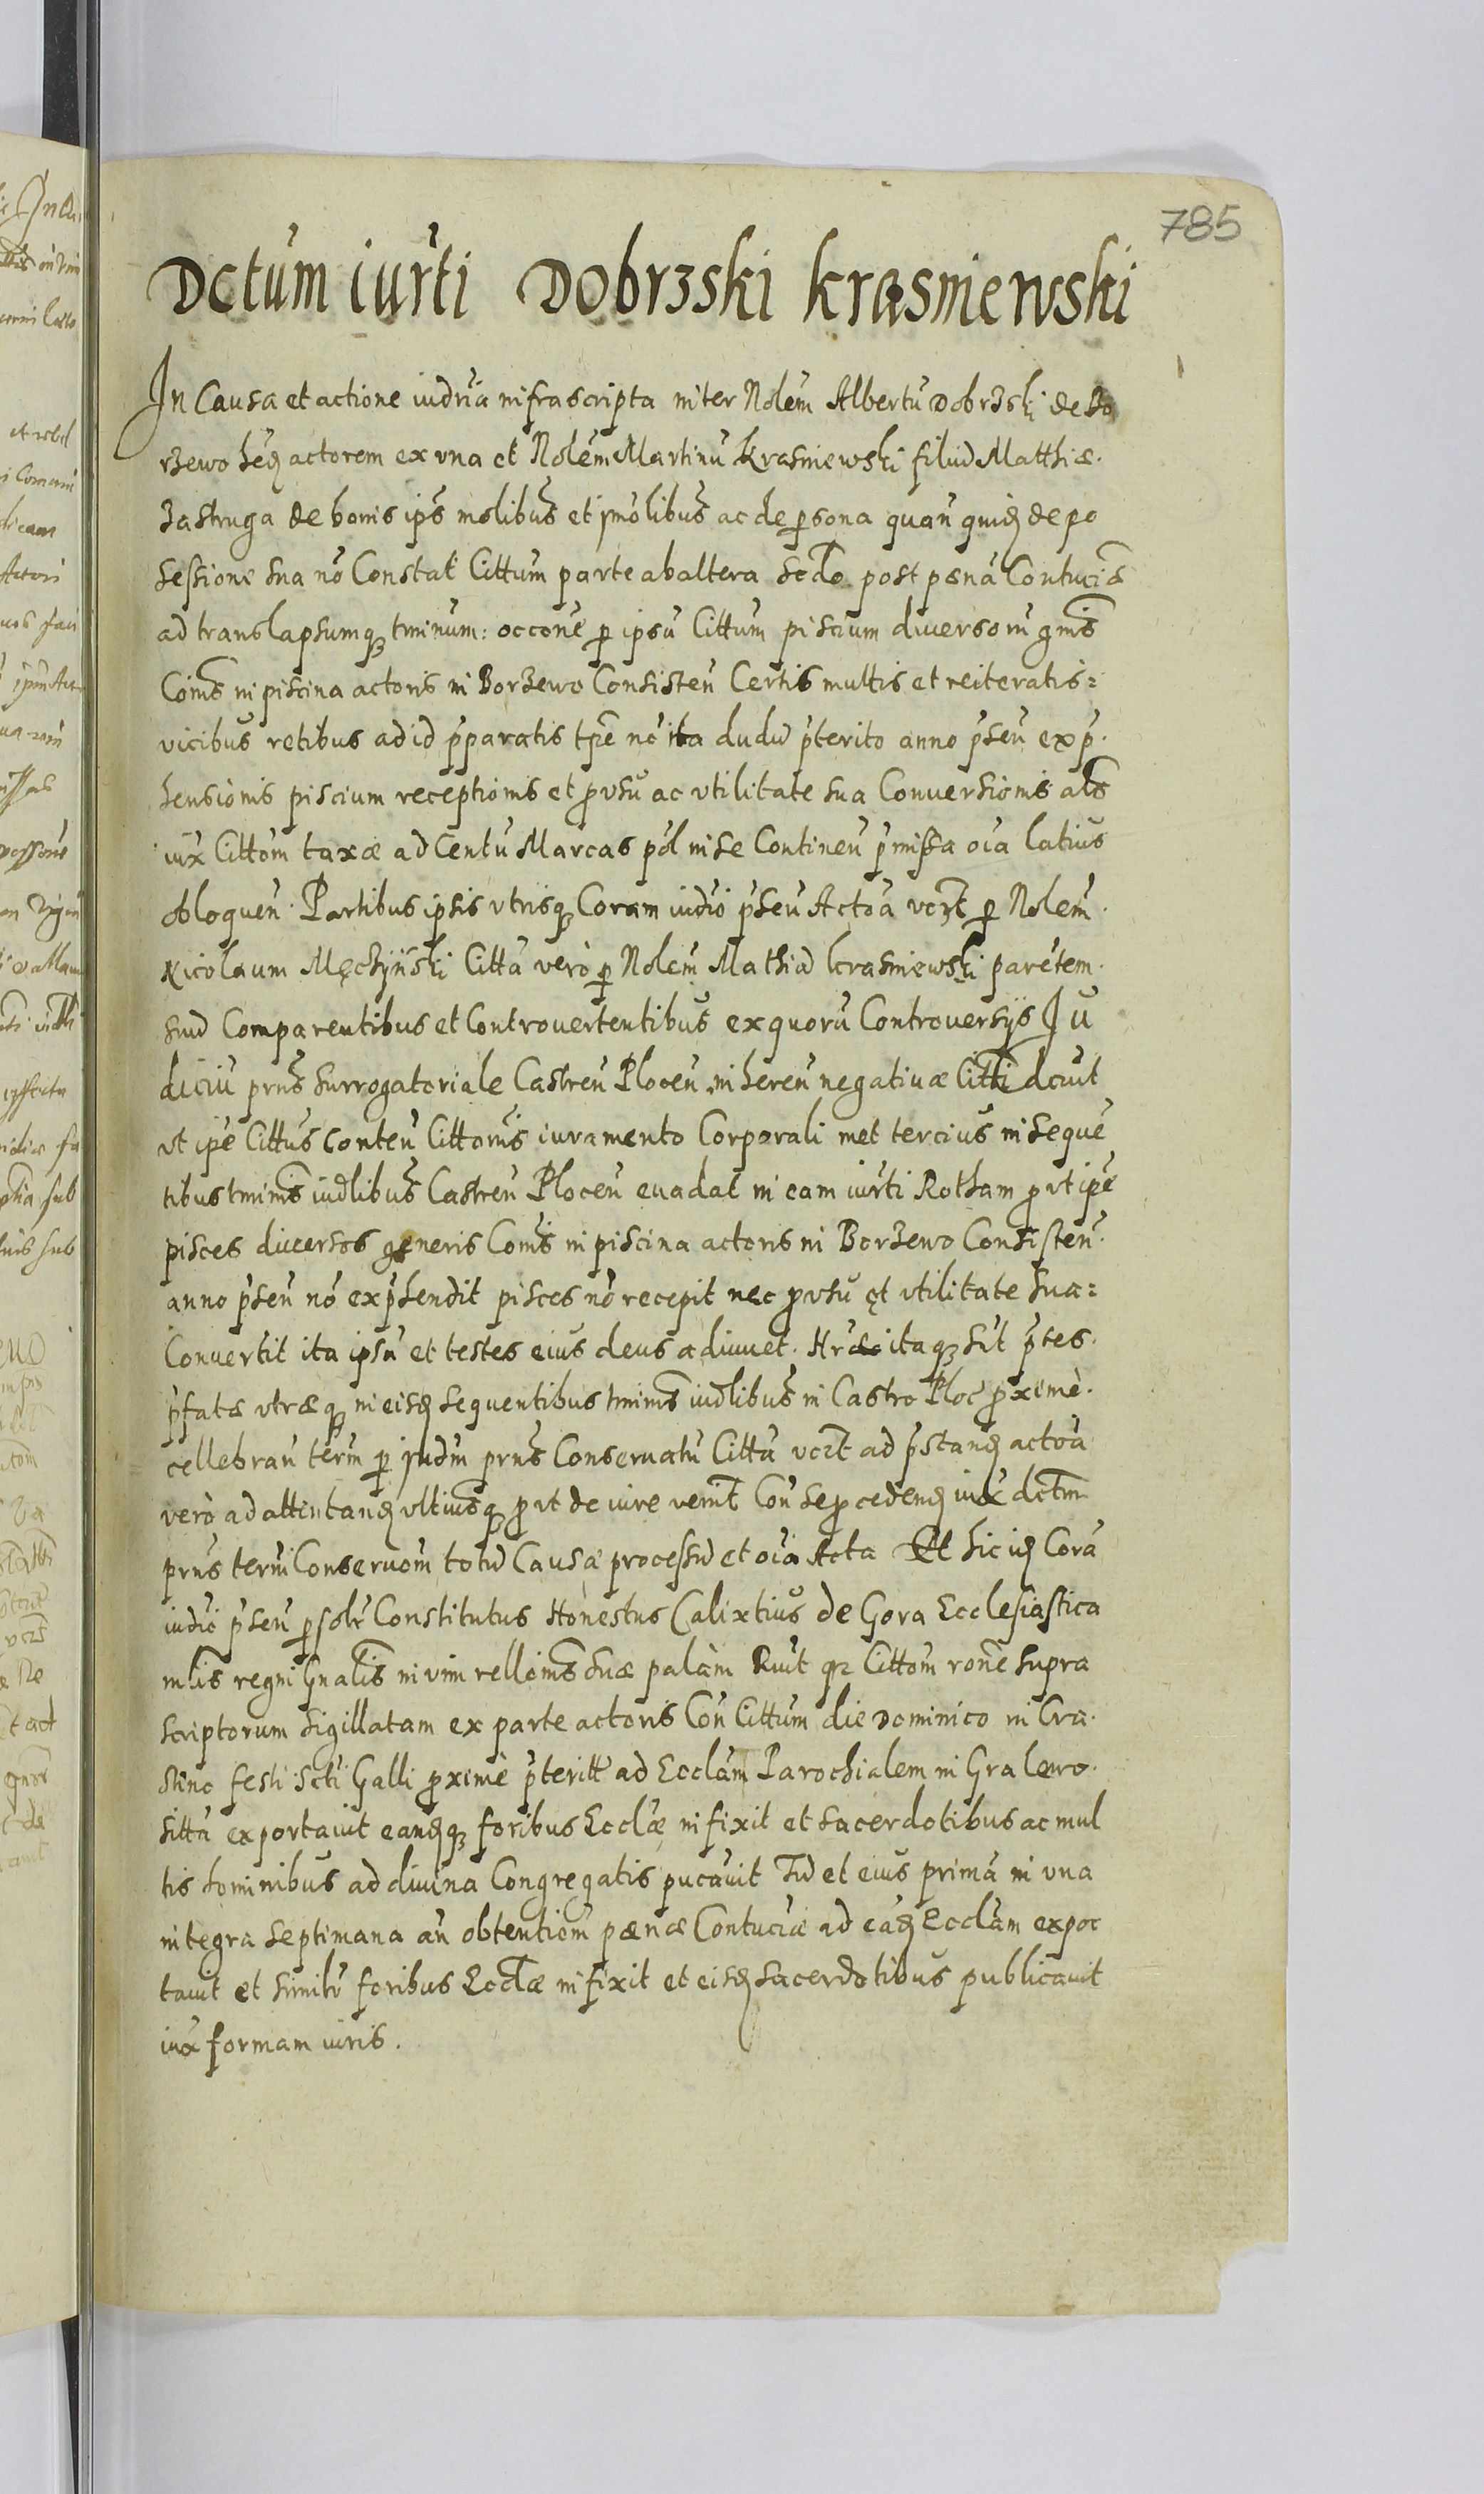 785
Dctum iurti Dobrzski Krasniewski
In Causa et actione iudria infrascripta inter Nolem Albertu Dobrzski de Bo
rzewo hed actorem ex vna et Nolem Martinu Krasniewski filiu Matthiæ
Jastruga de bonis ips molibus et imolibus ac de persona quan quid de po
sessione sua no Constat Cittum parte ab altera scdo post pœna Contuciæ
ad translapsumq tminum: occone p ipsu Cittum piscium diuersoru gnis
Coims in piscina actoris in Borzewo Consisten Certis multis et reiteratis=
vicibus retibus ad id pparatis tpe no ita dudu pterito anno psen exp
hensionis piscium receptionis et pro vsu ac vtilitate sua Conuersionis als
iux Cittom taxæ ad Centu Marcas pol in se Continen pmissa oia latius
obloquen. Partibus ipsis vtrisq Coram iudio psen Actoa vert p Nolem
Nicolaum Męchyński Citta verò p Nolem Mathia Krasniewski paretem
suu Comparentibus et Controuertentibus ex quoru Controuersijs Ju
diciu prns surrogatoriale Castren Plocen inheren negatiuæ Citti dcuit
vt ipe Cittus conten Cittonis iuramento Corporali met tercius in seque
tibus tminis iudlibus Castren Plocen euadat in eam iurti Rotham prout ipe
pisces diuersos generis Coms in piscina actoris in Borzewo Consisten
anno psen no exphendit pisces no recepit nec pro vsu et vtilitate sua=
Conuertit ita ipsu et testes eius deus adiuuet. Hrde itaq sut ptes
pfatæ vtræq in eisd sequentibus tminis iudlibus in Castro Ploc proximè
cellebran term p Judm prns Conseruatu Citta vert ad pstand actoa
verò ad attentand vltiusq prout de iure venit Con se procedend iux dctm
prns termi Conseruom totu Causæ processu et oia Acta Et hic id Cora
iudio psen psolr Constitutus Honestus Calixtius de Gora Ecclesiastica
mlis regni Gnalis in vim rellonis suæ palàm Ruit qz Cittom rone supra
scriptorum sigillatam ex parte actoris Con Cittum die Dominico in Cra
stino festi scti Galli proxime pteriti ad Ecclam Parochialem in Gralewo
sitta exportauit eandq foribus Ecclæ infixit et sacerdotibus ac mul
tis hominibus ad diuina Congregatis pucauit Tu et eius prima in vna
integra septimana an obtentiom pœnæ Contuciæ ad ead Ecclam expor
tauit et similr foribus Ecclæ infixit et eisd sacerdotibus publicauit
iux formam iuris.